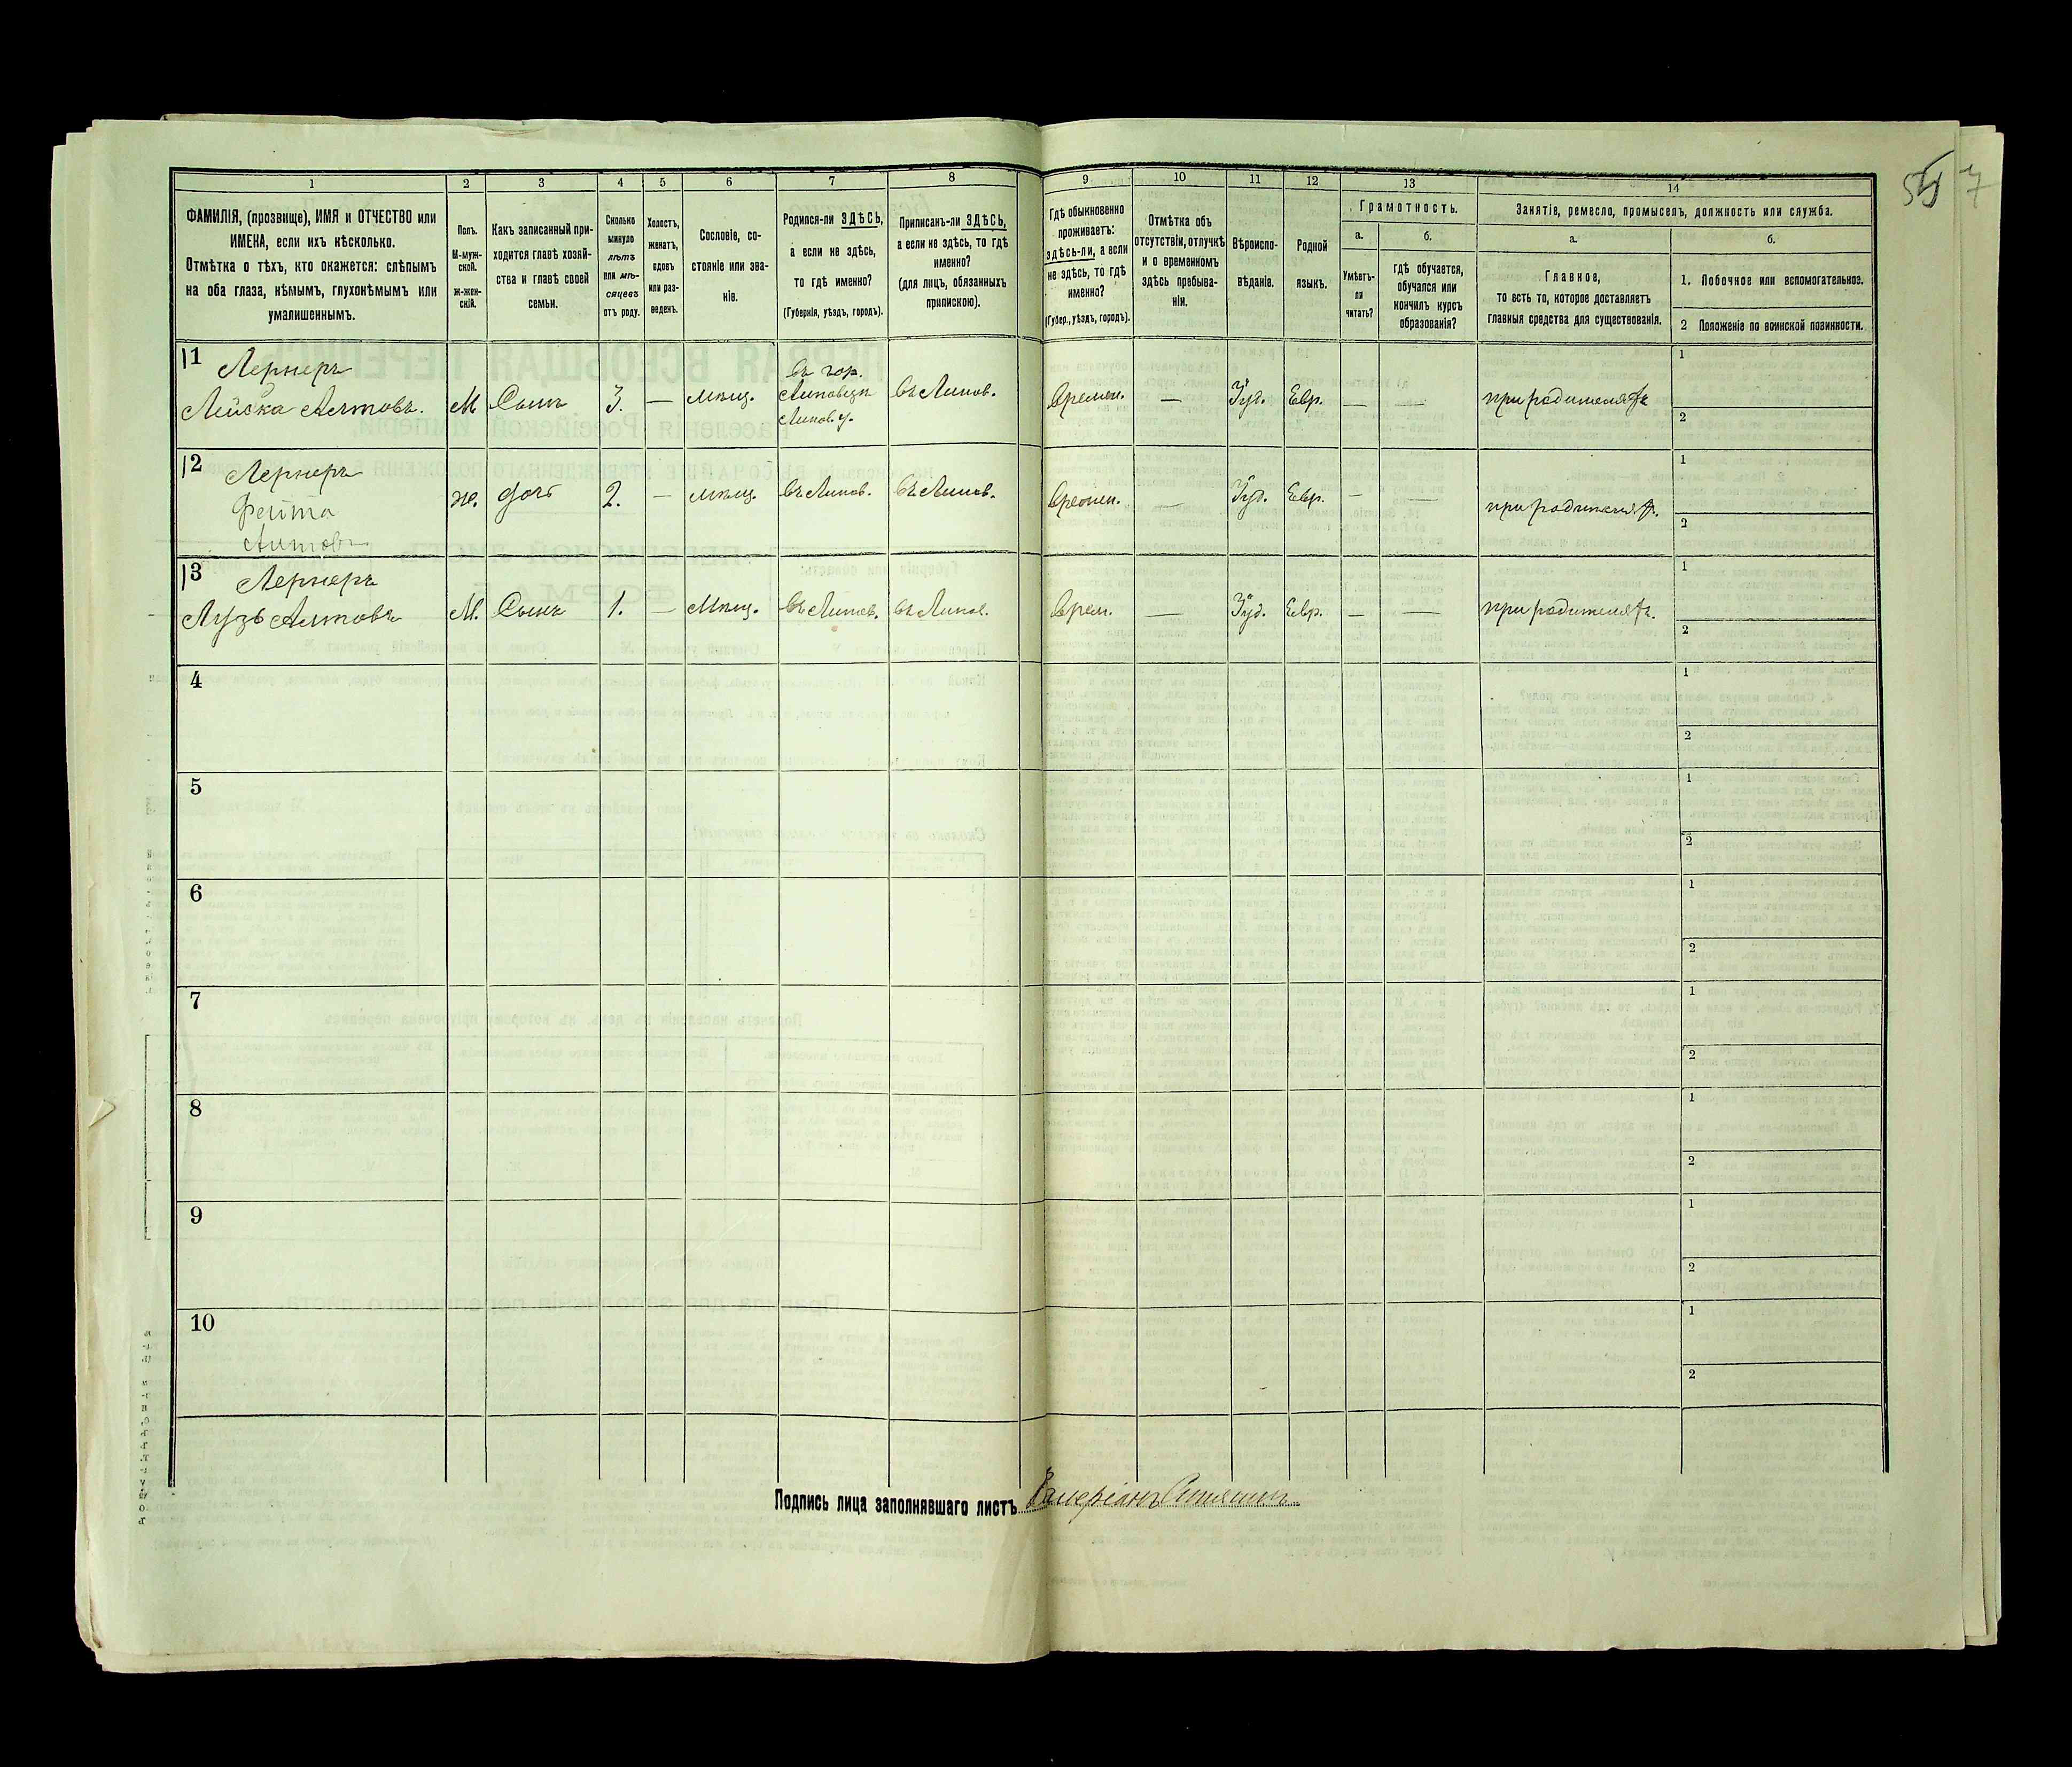 557
1 2 3 4 5 6 7 8 9 10 11 12 13 14
ФАМИЛІЯ, (прозвище), ИМЯ и ОТЧЕСТВО или
ИМЕНА, если ихъ нѣсколько.
Отмѣтка о тѣхъ, кто окажется: слѣпымъ
на оба глаза, нѣмымъ, глухонѣмымъ или
умалишеннымъ.
Полъ.
М-муж-
ской.
ж-жен-
скій.
Какъ записанный при-
ходится главѣ хозяй-
ства и главѣ своей
семьи.
Сколько
минуло
лѣтъ
или мѣ-
сяцевъ
отъ роду.
Холостъ,
женатъ,
вдовъ
или раз-
веденъ.
Сословіе, со-
стояніе или зва-
ніе.
Родился-ли ЗДѢСЬ,
а если не здѣсь,
то гдѣ именно?
(Губернія, уѣздъ, городъ).
Приписанъ-ли ЗДѢСЬ,
а если не здѣсь, то гдѣ
именно?
(для лицъ, обязанныхъ
припискою).
Гдѣ обыкновенно
проживаетъ:
здѣсь-ли, а если
не здѣсь, то гдѣ
именно?
(Губер., уѣздъ, городъ).
Отмѣтка объ
отсутствіи, отлучкѣ
и о временномъ
здѣсь пребыва-
ніи.
Вѣроиспо-
вѣданіе.
Родной
языкъ.
Грамотность.
а.
Умѣетъ-
ли
читать?
б.
гдѣ обучается,
обучался или
кончилъ курсъ
образованія?
Занятіе, ремесло, промыселъ, должность или служба.
а.
Главное,
то есть то, которое доставляетъ
главныя средства для существованія.
б.
1. Побочное или вспомогательное.
2 Положеніе по воинской повинности.
11 Лернеръ
М Сынъ 3. — мѣщ.
въ гор.
Липовецъ
Липов. у.
въ Липов. Времен. — Іуд. Евр. — — при родителяхъ
1
2
12 Лернеръ
Фейга
ж. дочь 2. — мѣщ. въ Липов. въ Липов. Времен. — Іуд. Евр. — — при родителях.
1
2
13 Лернеръ
М. Сынъ 1. — Мѣщ. въ Липов. въ Липов. Врем. — Іуд. Евр. — — при родителях.
1
2
4
1
2
5
1
2
6
1
2
7
1
2
8
1
2
9
1
2
10
1
2
Подпись лица заполнявшаго листъ Валеріанъ